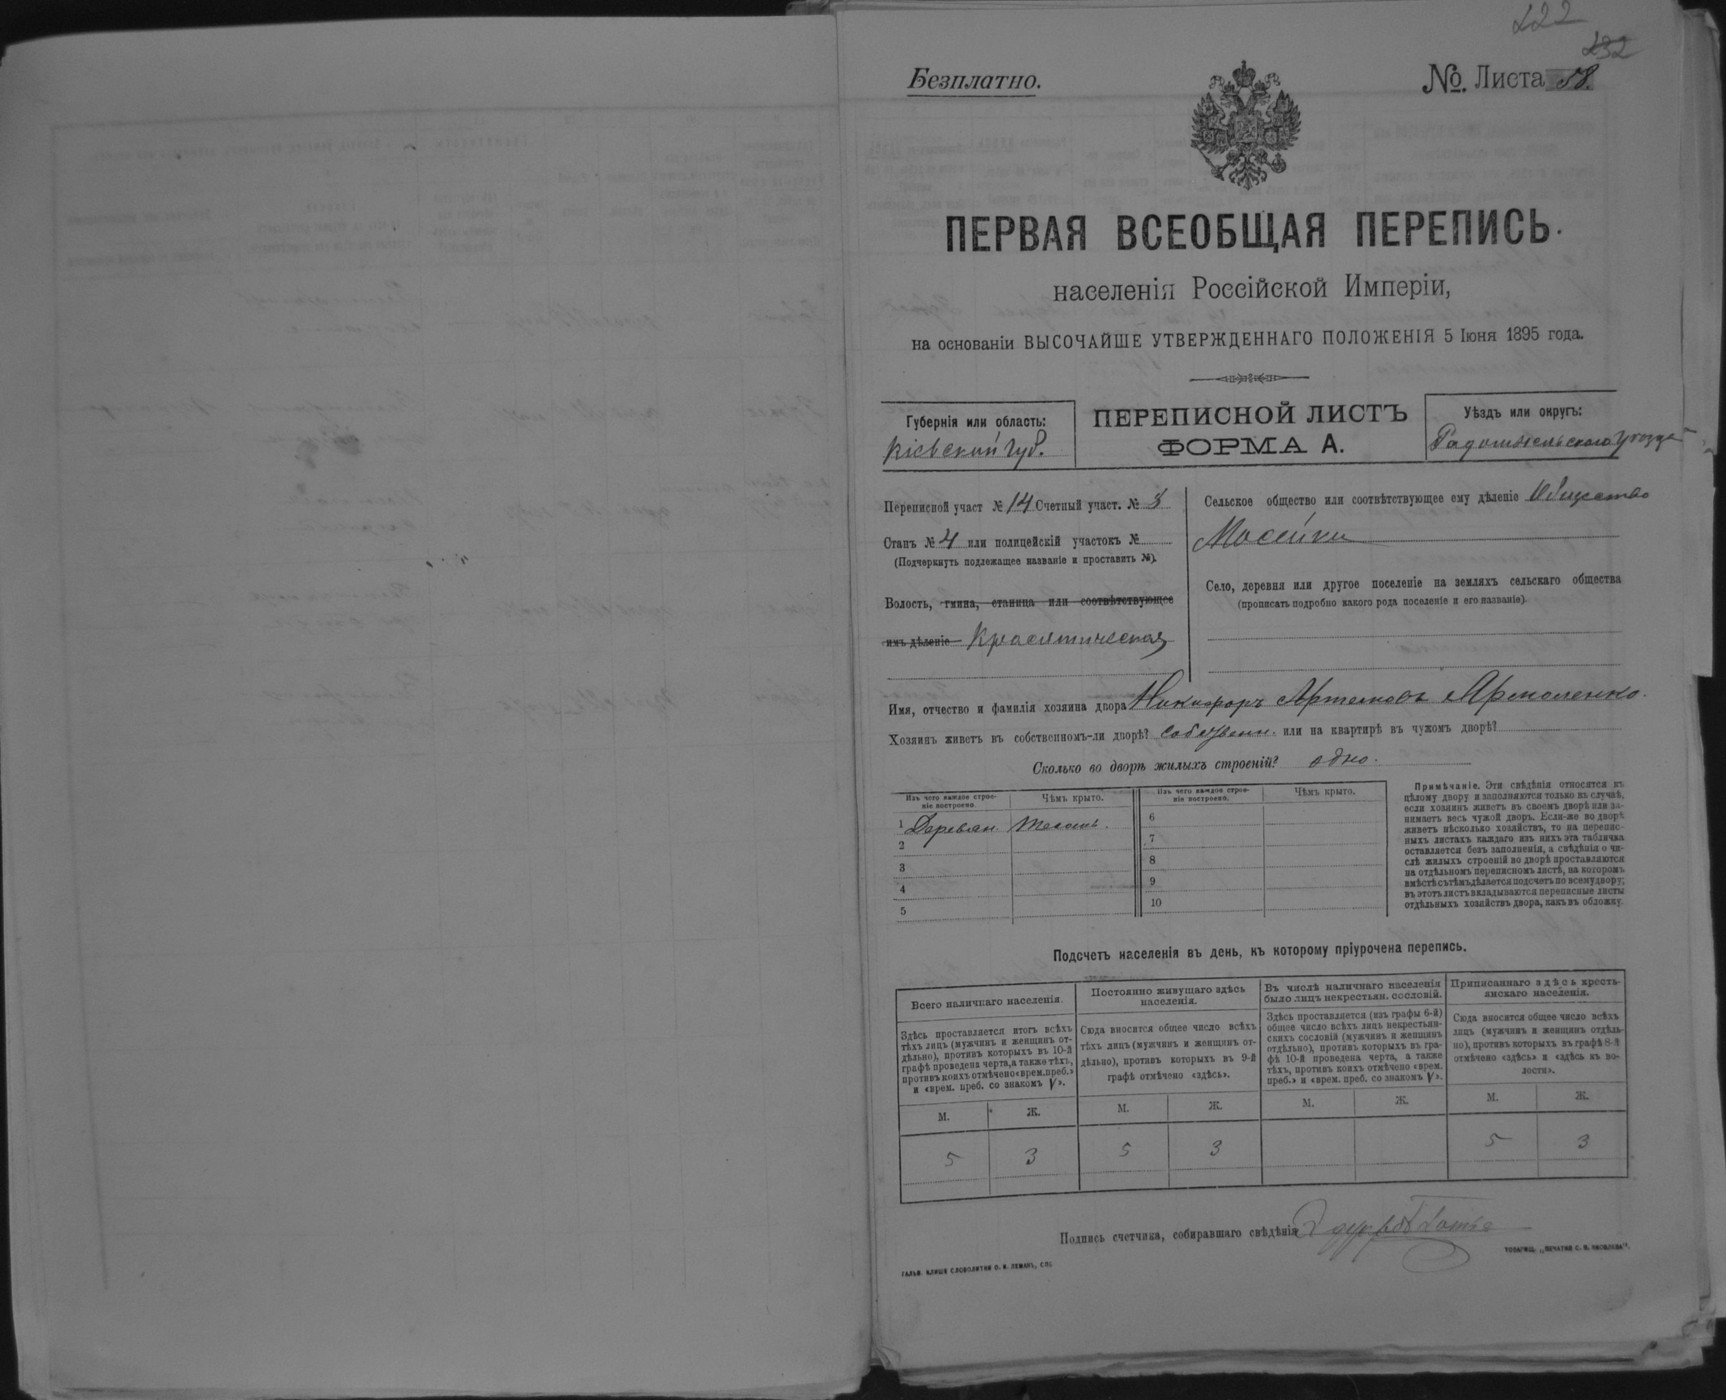 222
232
Безплатно.
№. Листа 58.
ПЕРВАЯ ВСЕОБЩАЯ ПЕРЕПИСЬ.
населенія Россійской Имперіи,
на основаніи ВЫСОЧАЙШЕ УТВЕРЖДЕННАГО ПОЛОЖЕНІЯ 5 Іюня 1895 года.
Губернія или область:
Кіевской губ.
ПЕРЕПИСНОЙ ЛИСТЪ
ФОРМА А.
Уѣздъ или округъ:
Радомысльскаго уѣзда
Переписной участ № 14 Счетный участ. № 3
Станъ № 4 или полицейскій участокъ №
(Подчеркнуть подлежащее названіе и проставить №).
Волость, гмина, станица или соотвѣтствующее
имъ дѣленіе Красятическая
Сельское общество или соотвѣтствующее ему дѣленіе Общество
Мосейки
Село, деревня или другое поселеніе на земляхъ сельскаго общества
(прописать подробно какого рода поселеніе и его названіе)
Имя, отчество и фамилія хозяина двора Никифоръ Артемовъ Ярмоленко.
Хозяинъ живетъ въ собственномъ-ли дворѣ? собствен. или на квартирѣ въ чужомъ дворѣ?
Сколько во дворѣ жилыхъ строеній? одно.
Изъ чего каждое строе-
ніе построено.
Чѣмъ крыто.
Изъ чего каждое строе-
ніе построено.
Чѣмъ крыто.
1 Деревян.
2
3
4
5
6
7
8
9
10
Примѣчаніе. Эти свѣдѣнія относятся къ
цѣлому двору и заполняются только въ случаѣ,
если хозяинъ живетъ въ своемъ дворѣ или за-
нимаетъ весь чужой дворъ. Если-же во дворѣ
живетъ нѣсколько хозяйствъ, то на перепис-
ныхъ листахъ каждаго изъ нихъ эта табличка
оставляется безъ заполненія, а свѣдѣнія о чи-
слѣ жилыхъ строеній во дворѣ проставляются
на отдѣльномъ переписномъ листѣ, на которомъ
вмѣстѣ съ тѣмъ дѣлается подсчетъ по всему двору;
въ этотъ листъ вкладываются переписные листы
отдѣльныхъ хозяйствъ двора, какъ въ обложку.
Подсчетъ населенія въ день, къ которому пріурочена перепись.
Всего наличнаго населенія.
Здѣсь проставляется итогъ всѣхъ
тѣхъ лицъ (мужчинъ и женщинъ от-
дѣльно), противъ которыхъ въ 10-й
графѣ проведена черта, а также тѣхъ,
противъ коихъ отмѣчено «врем. преб.»
и «врем. преб. со знакомъ V».
Постоянно живущаго здѣсь
населенія.
Сюда вносится общее число всѣхъ
тѣхъ лицъ (мужчинъ и женщинъ от-
дѣльно), противъ которыхъ въ 9-й
графѣ отмѣчено «здѣсь».
Въ числѣ наличнаго населенія
было лицъ некрестьян. сословій.
Здѣсь проставляется (изъ графы 6-й)
общее число всѣхъ лицъ некрестьян-
скихъ сословій (мужчинъ и женщинъ
отдѣльно), противъ которыхъ въ гра-
фѣ 10-й проведена черта, а также
тѣхъ, противъ коихъ отмѣчено «врем.
преб.» и «врем. преб. со знакомъ V».
Приписаннаго здѣсь кресть-
янскаго населенія.
Сюда вносится общее число всѣхъ
лицъ (мужчинъ и женщинъ отдѣль-
но), противъ которыхъ въ графѣ 8-й
отмѣчено «здѣсь» и «здѣсь въ во-
лости».
М. Ж. М. Ж. М. Ж. М. Ж.
5 3 5 3 5 3
Подпись счетчика, собиравшаго свѣдѣнія
ГАЛЬВ. КЛИШЕ СЛОВОЛИТНИ О. И. ЛЕМАНЪ, СПБ
ТОВАРИЩ. „ПЕЧАТНЯ С. П. ЯКОВЛЕВА".